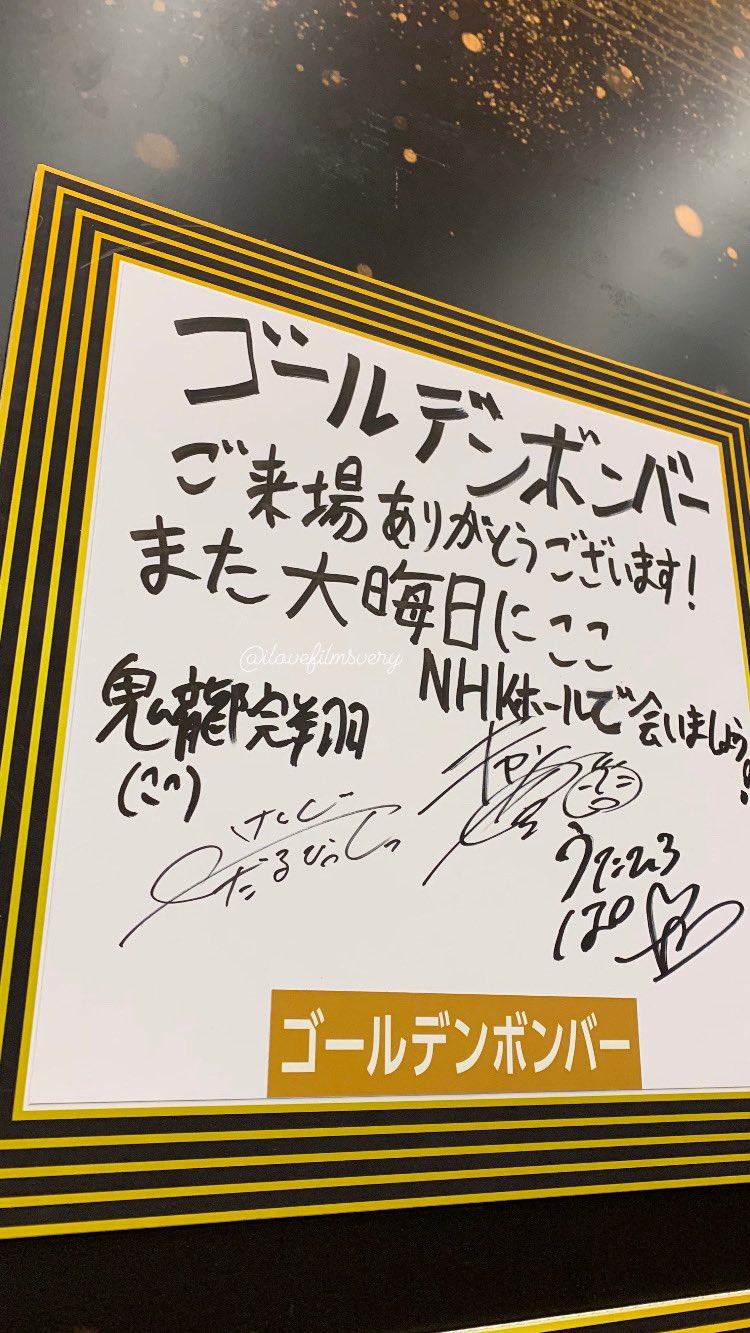 ゴールデンボンバー
ご来場ありがとうございます!
また大晦日にここ
NHKホールで会いましょう!
@ilovefilmsvery
鬼龍院翔
けんじ
だるびっしゅ
うたひろ
ば
ゴールデンボンバー